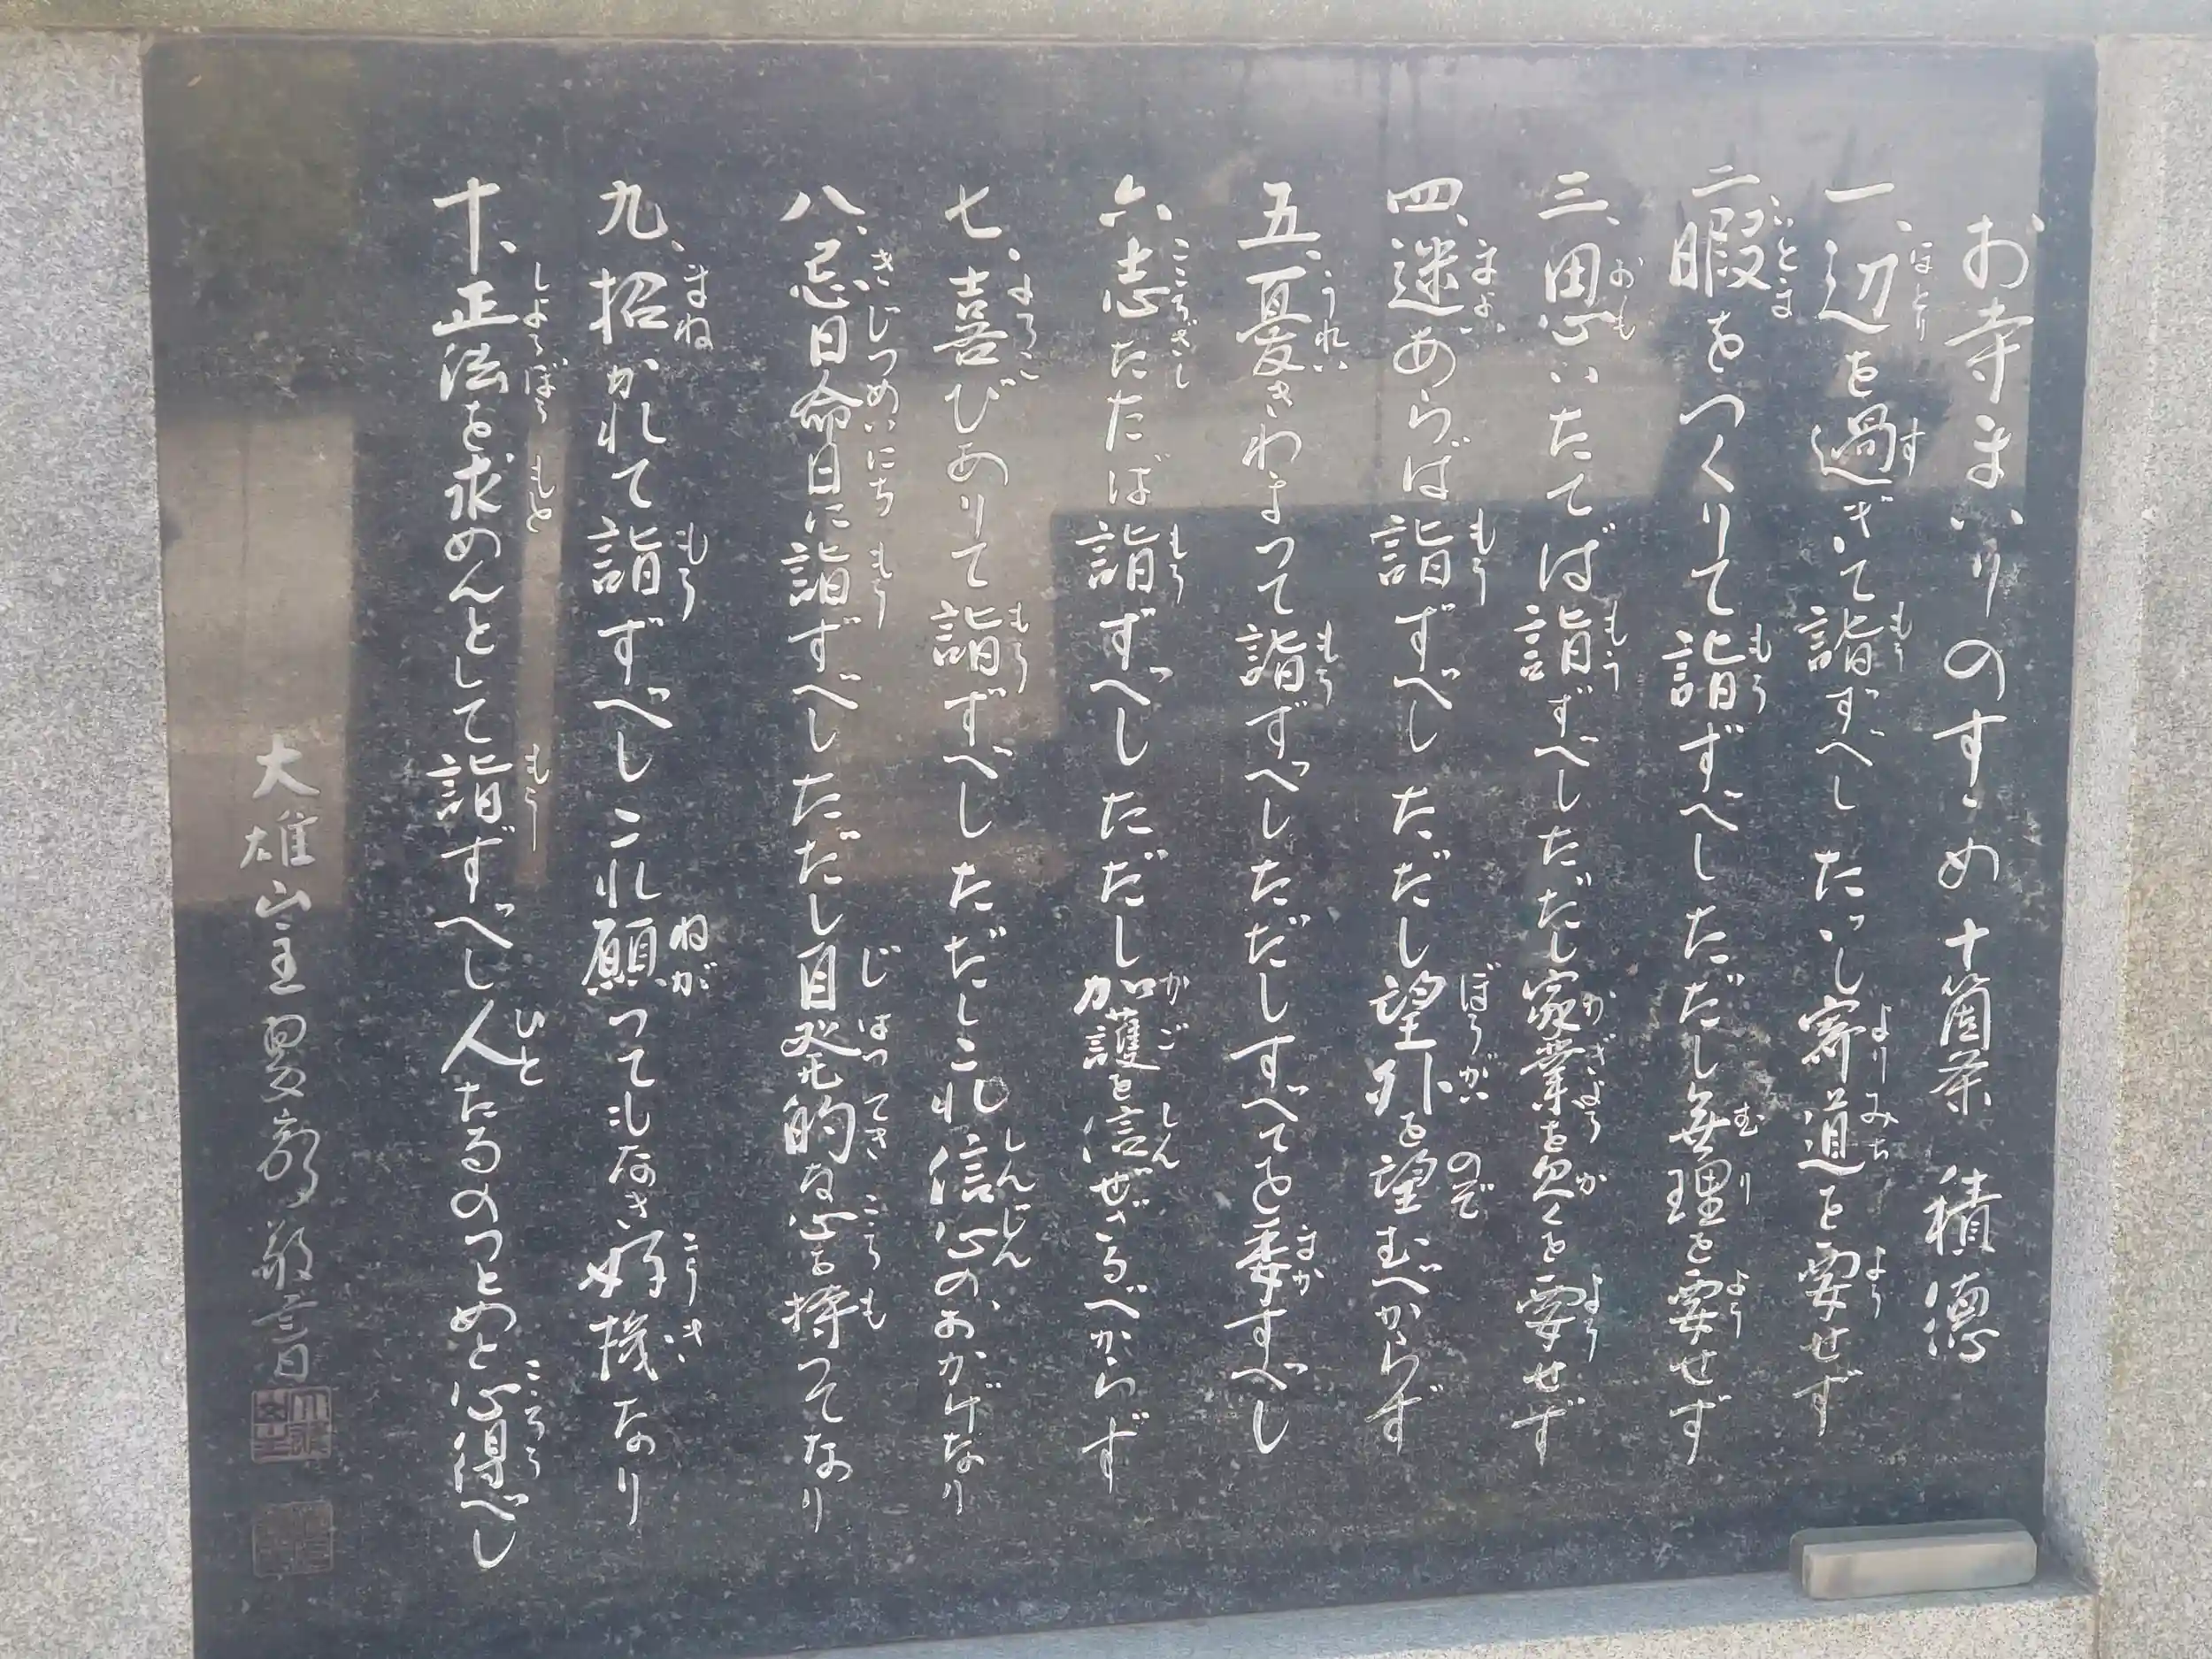 お寺まいりのすゝめ十箇条 積徳
一、辺を過ぎて詣ずべし ただし寄道を要せず
二、暇をつくりて詣ずべし ただし無理を要せず
三、思いたてば詣ずべし ただし家業を欠くを要せず
四、迷あらば詣ずべし ただし望外を望むべからず
五、憂きわまって詣ずべし ただしすべてを委すべし
六、志たたば詣ずべし ただし加護を信ぜざるべからず
七、喜びありて詣ずべし ただしこれ信心のおかげなり
八、忌日命日に詣ずべし ただし自発的な心を持ってなり
九、招かれて詣ずべし これ願ってもなき好機なり
十、正法を求めんとして詣ずべし 人たるのつとめと心得べし
大雄山主